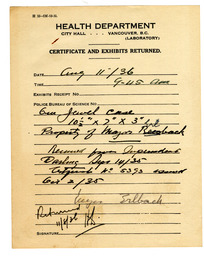 HEALTH DEPARTMENT
CITY HALL VANCOUVER, B.C.
(LABORATORY)
CERTIFICATE AND EXHIBITS RETURNED.
DATE Aug 11/36
TIME 9-45 Am
EXHIBITS RECEIPT NO.
POLICE BUREAU OF SCIENCE NO.
One Jewel Case
10½" x 7" x 3"
Property of Major
Received from Inspector
Darling Sept 14/35
No 5393
Oct 2/35
Major
Returned
11/8/36
SIGNATURE